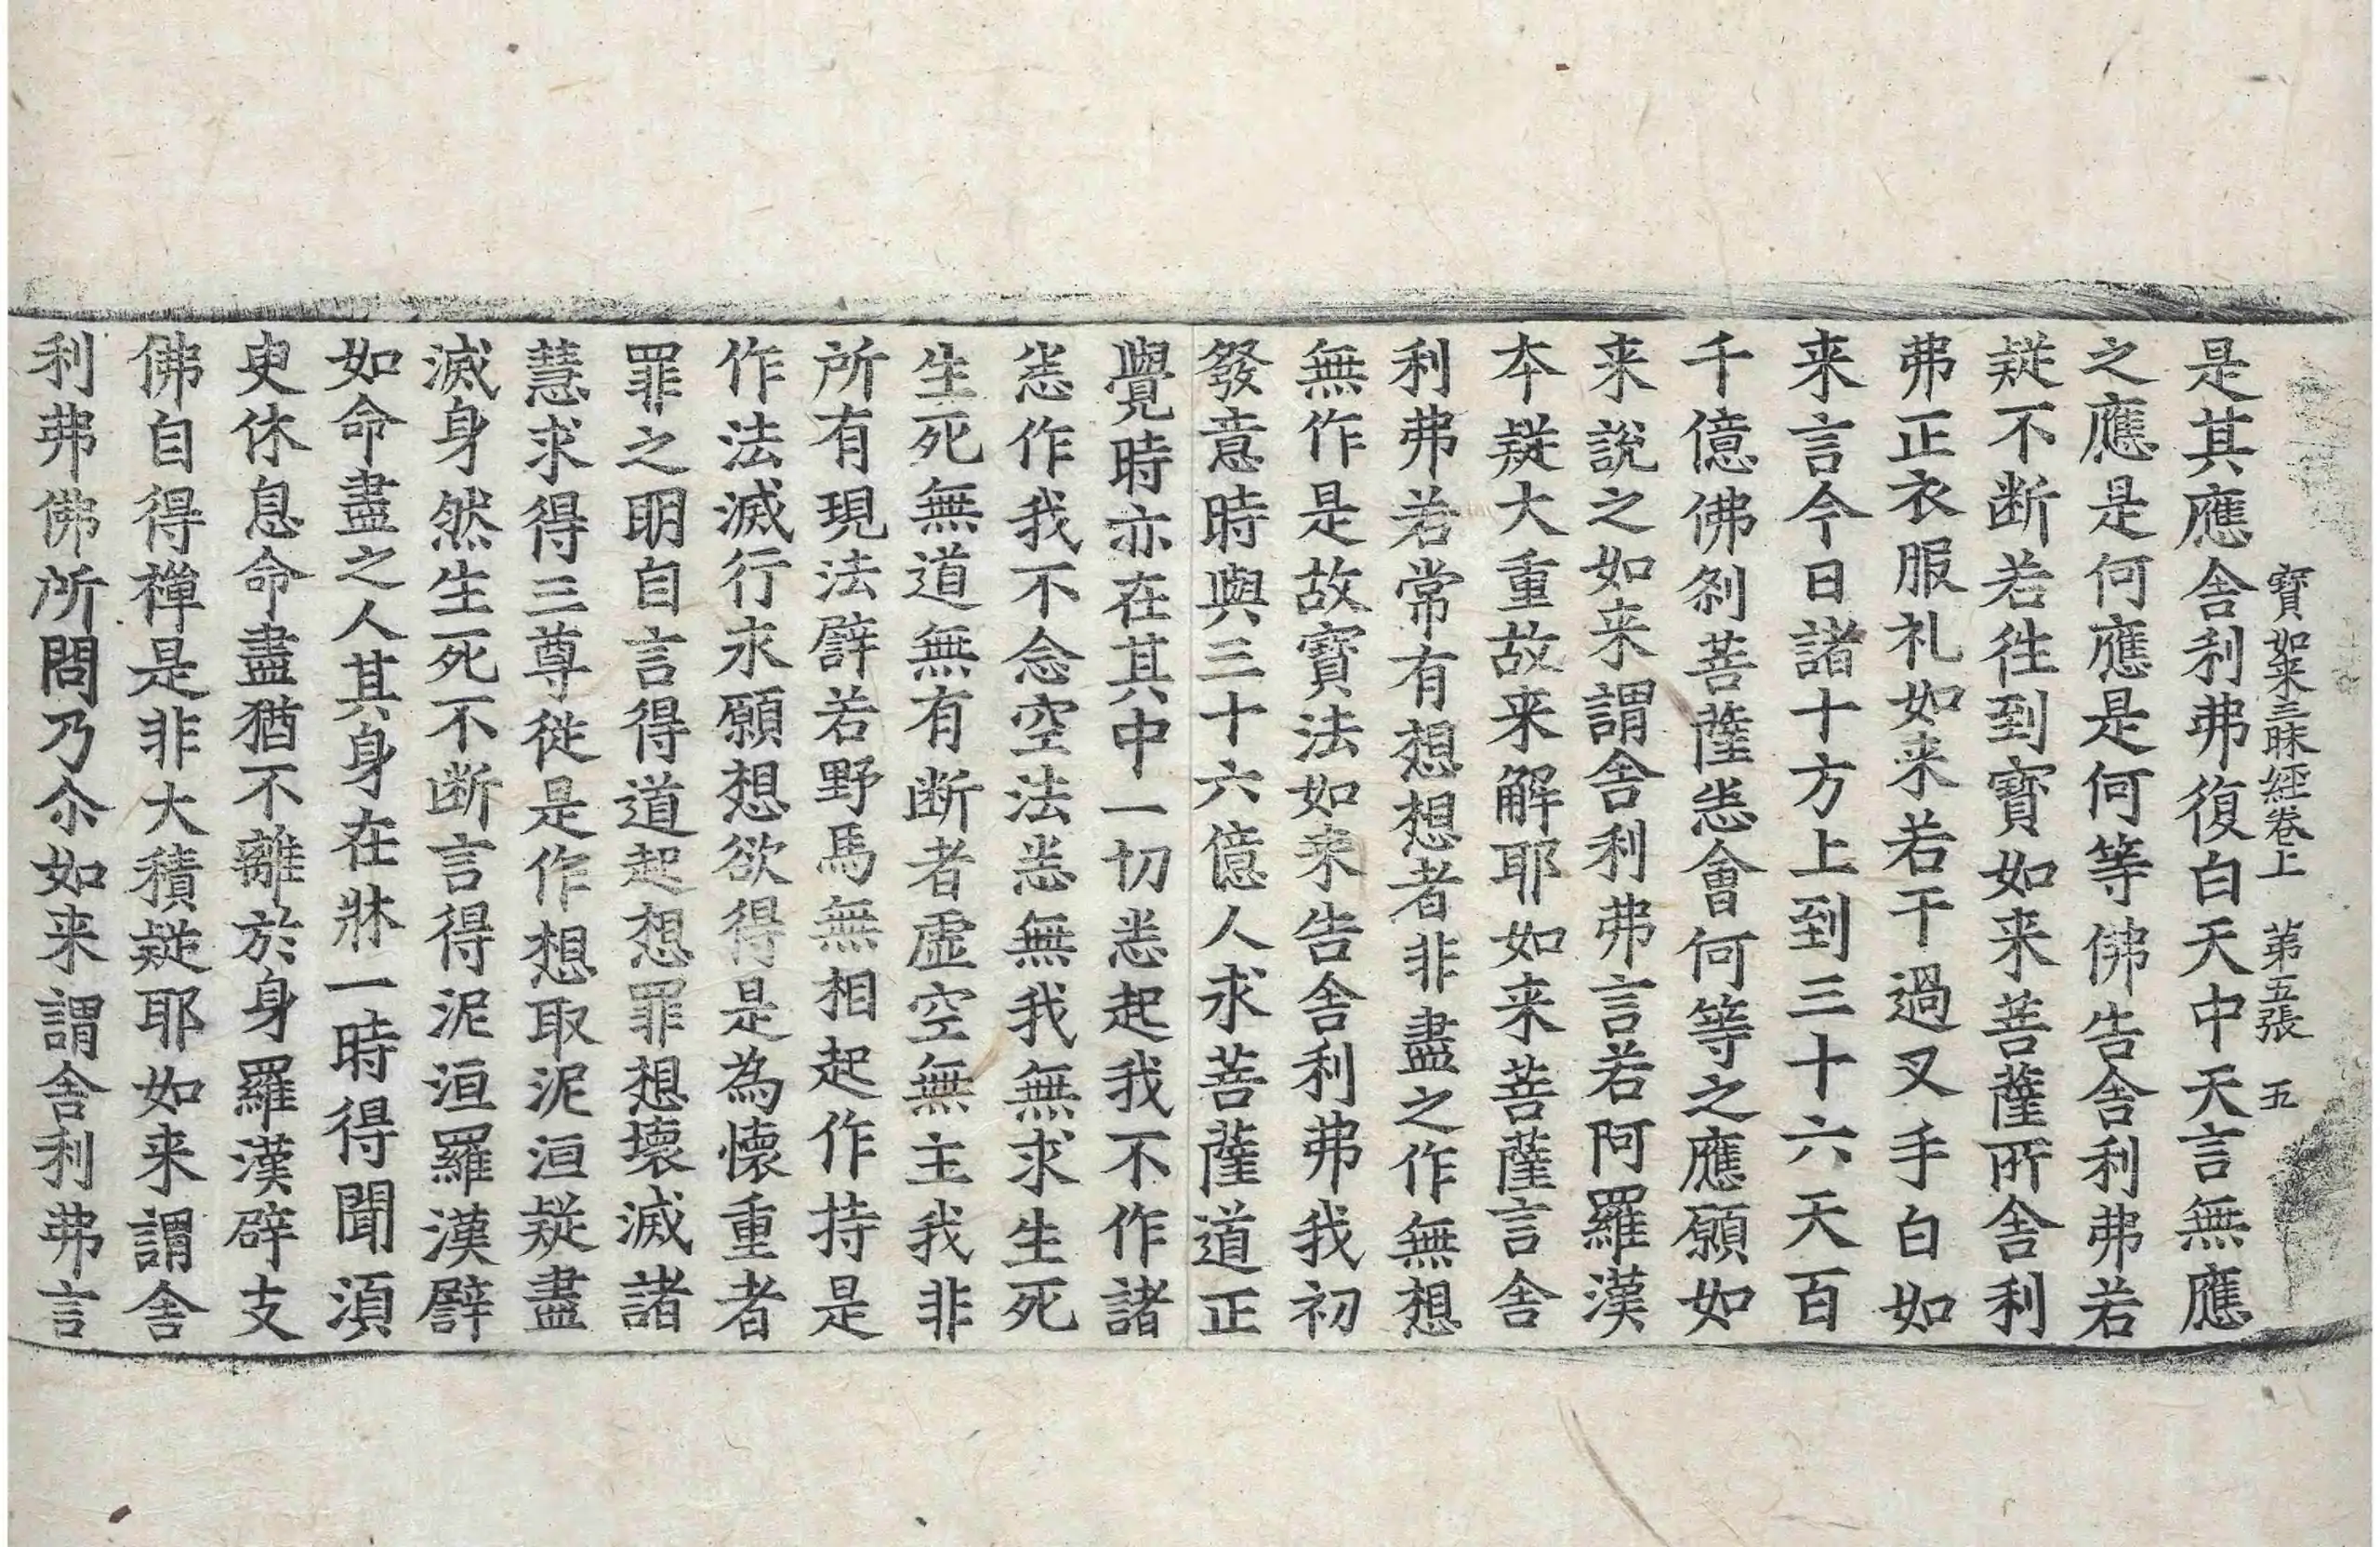 寶如来三昧經卷上　第五張　五
是其應舍利弗復白天中天言無應
之應是何應是何等佛告舍利弗若
疑不断若徃到寶如来菩薩所舍利
弗正衣服礼如来若干過叉手白如
来言今日諸十方上到三十六天百
千億佛刹菩薩恚會何等之應願如
来說之如来謂舍利弗言若阿羅漢
本疑大重故来解耶如来菩薩言舍
利弗若常有想想者非盡之作無想
無作是故寶法如来告舍利弗我初
發意時與三十六億人求菩薩道正
覺時亦在其中一切恚起我不作諸
恚作我不念空法恚無我無求生死
生死無道無有断者虛空無主我非
所有現法譬若野馬無相起作持是
作法滅行求願想欲得是為懷重者
罪之明自言得道起想罪想壞滅諸
慧求得三尊従是作想取泥洹疑盡
滅身然生死不断言得泥洹羅漢譬
如命盡之人其身在牀一時得聞湏
臾休息命盡猶不離於身羅漢辟支
佛自得禪是非大積疑耶如来謂舍
利弗佛所問乃尒如来謂舍利弗言